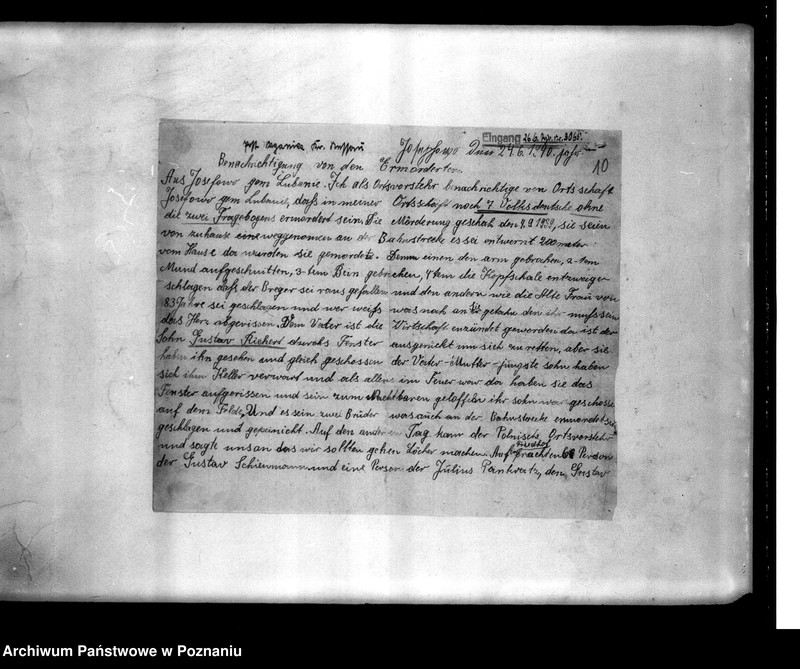 Eingang 26.6.
Josefowo den 24.6.1940. jahr
10
Benachrichtigung von den Ermorderten.
Aus Josefowo gem Lubanie. Ich als Ortsvorstehr benachrichtige von Ortschaft
Josefowo gem Lubanie, daß in meiner Ortschaft noch 7 Volksdeutsche ohne
die zwei Fragebogens ermordert sein. Die Mörderung geschah den 9.9.1939, sie seien
von zuhause eineweggenomen an der Bahnstrecke es sei entwernt 200 meter
vom Hause da wurden sie gemordet. einen den arm gebrochen, 2-tem
Mund aufgeschnitten, 3-tem Bein gebrochen, 4tem die Kopfschale entzweige-
schlagen daß der Breger sei raus gefallen und den andern wie die Alte Frau von
83 Jahre sei geschlagen und wer weiß was noch an Sie getahn den ihr muß sein
das Herz abgerissen. Dem Vater ist die Wirtschaft enzündet geworden da ist der
Sohn Gustav Rickert durchs Fenster ausgerückt um sich zu retten, aber sie
haben ihn gesehn und gleich geschossen der Vater - Mutter - jüngste sohn haben
sich im Keller verwart und als alles im Feuer war da haben sie das
Fenster aufgerissen und sein zum Nachtbaren geloffen ihr sohn war geschossen
auf dem Felde, Und es sein zwei Brüder was auch an der Bahnstrecke ermordet sei
geschlagen und gepeinicht. Auf den anderen Tag kam der Polnische Ortsvorstehr
und sagte uns an das wir sollten gehen Löcher machen. Auf Friedhof brachten 6 Person
der Gustav Schiermann und eine Person der Julius Pankratz, den Gustav
Archiwum Państwowe w Poznaniu